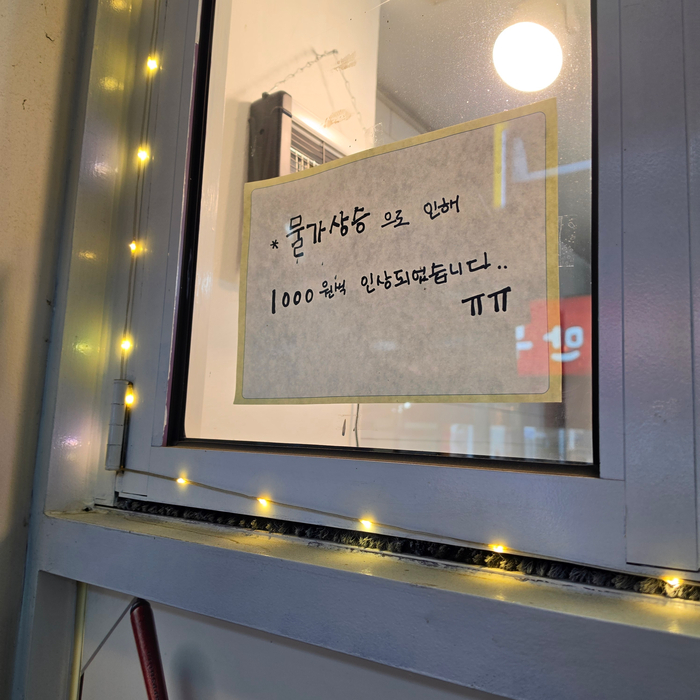 * 물가상승 으로 인해
1000원씩 인상되었습니다..
ㅠㅠ